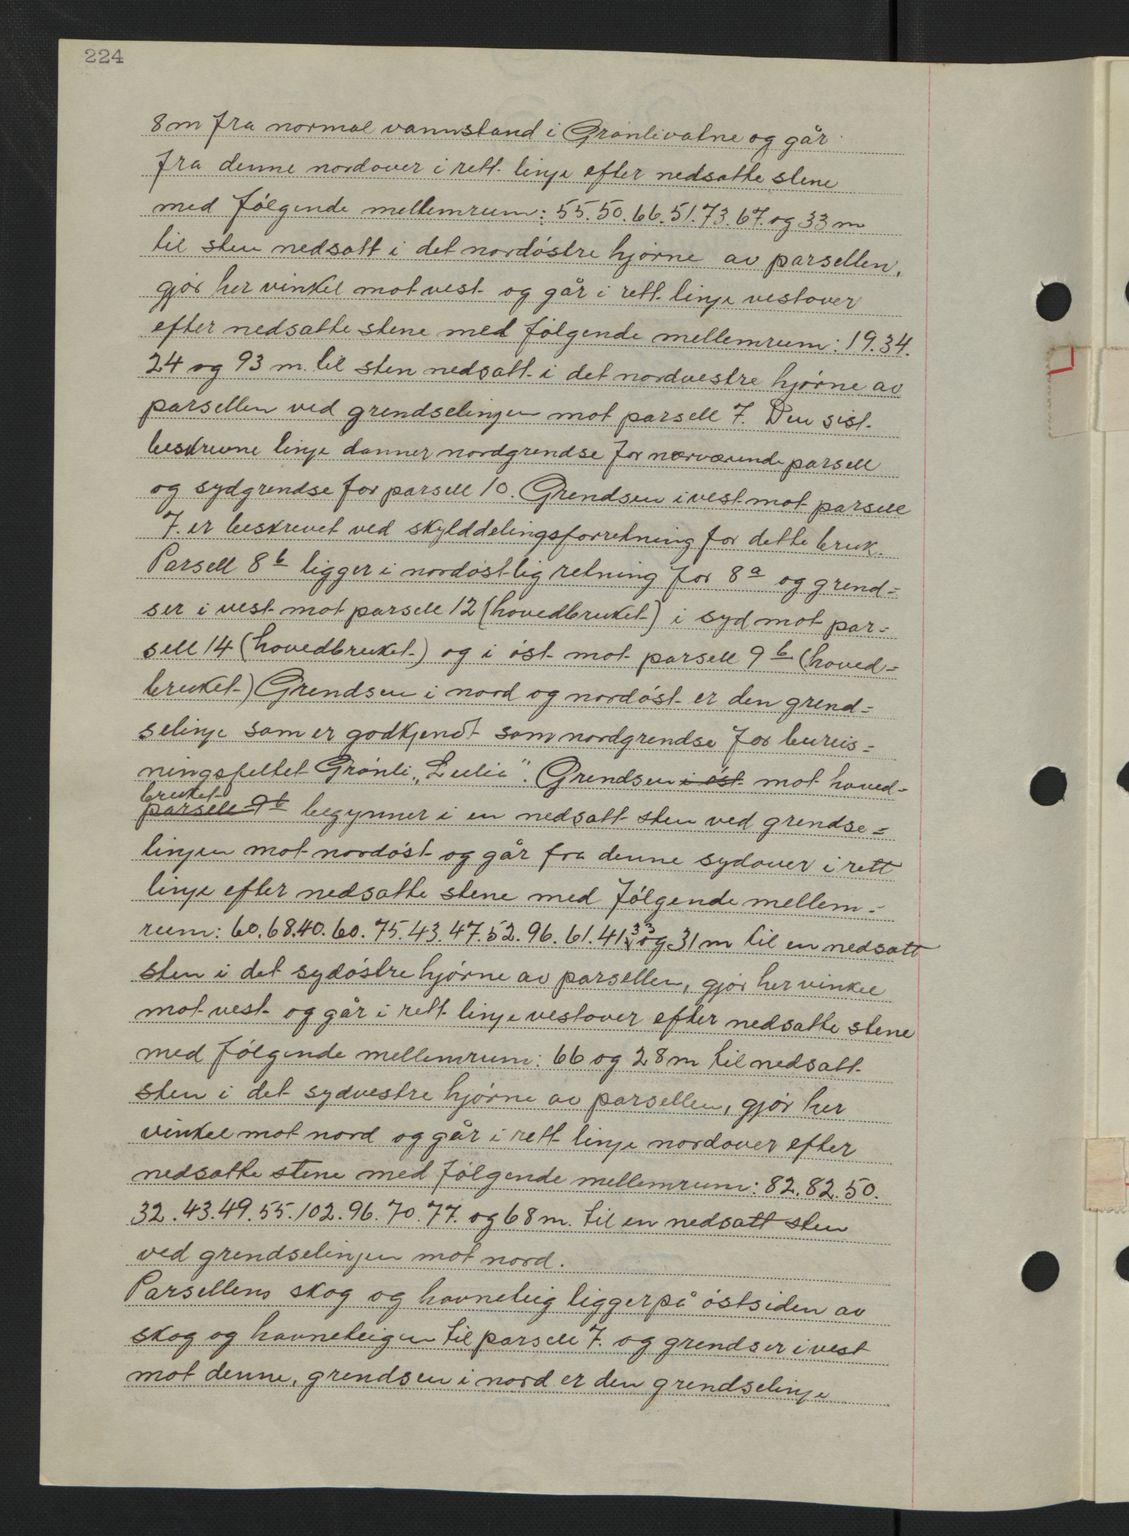 224
8 m fra normal vannstand i Grønlivatne og går
fra denne nordover i rett linje efter nedsatte stene
med følgende mellemrum: 55. 50. 66. 51. 73. 67. og 33 m
til sten nedsatt i det nordøstre hjørne av parsellen,
gjør her vinkel mot vest og går i rett linje vestover
efter nedsatte stene med følgende mellemrum: 19. 34.
24 og 93 m. til sten nedsatt i det nordvestre hjørne av
parsellen ved grendselinjen mot parsell 7. Den sist
beskrevne linje danner nordgrendse for nærværende parsell
og sydgrendse for parsell 10. Grendsen i vest mot parsell
7. er beskrevet ved skylddelingsforretning for dette bruk.
Parsell 8b ligger i nordøstlig retning for 8a og grend=
ser i vest mot parsell 12 (hovedbruket) i syd mot par=
sell 14 (hovedbruket) og i øst mot parsell 9b (hoved=
bruket) Grendsen i nord og nordøst er den grend=
selinje som er godkjendt som nordgrendse for bureis=
ningsfeltet Grønli. Grendsen i øst mot hoved=
bruket
parsell 9b begynner i en nedsatt sten ved grendse=
linjen mot nordøst og går fra denne sydover i rett
linje efter nedsatte stene med følgende mellem=
rum: 60. 68. 40. 60. 75. 43. 47. 52. 96. 61. 41. 33 og 31 m til en nedsatt
sten i det sydøstre hjørne av parsellen, gjør her vinkel
mot vest og går i rett linje vestover efter nedsatte stene
med følgende mellemrum: 66 og 28 m til nedsatt
sten i det sydvestre hjørne av parsellen, gjør her
vinkel mot nord og går i rett linje nordover efter
nedsatte stene med følgende mellemrum: 82. 82. 50.
32. 43. 49. 55. 102. 96. 70. 77. og 68 m. til en nedsatt sten
ved grendselinjen mot nord.
Parsellens skog og havneteig ligger på østsiden av
skog og havneteigen til parsell 7. og grendser i vest
mot denne, grendsen i nord er den grendselinje